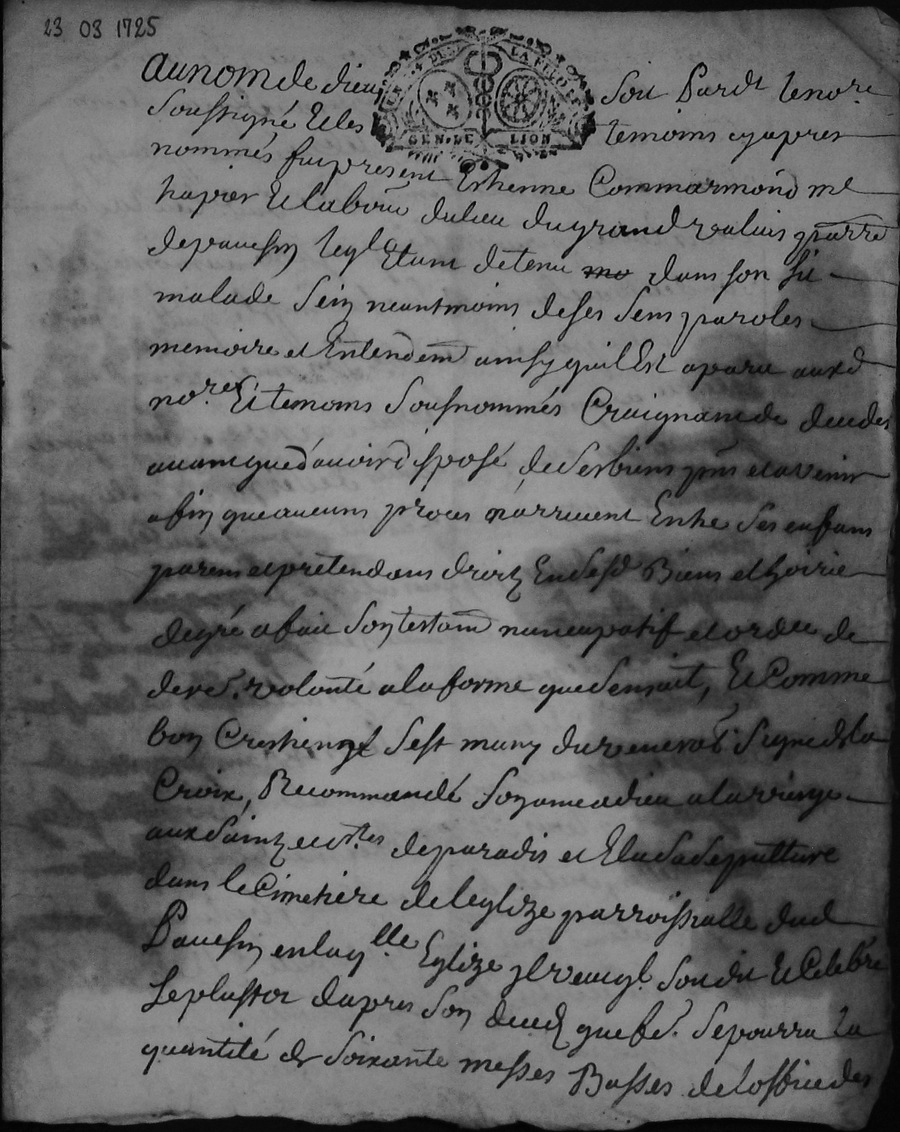 23 03 1725
GEN. DE LION
au nom de dieu soit Pardt le no.re
soussigné et les temoins cy apres
nommés fut present Estienne Commarmond me
hapier et labour du lieu du grand valuis parre
de paues̃y leql Etant detenu dans son lit
malade sein neantmoins de ses sens paroles
memoire et Entendem̃ ainsy quil Est aparu aud
no.re Et temoins sousnommés Craignant de deceder
auant que d'auoir disposé de ses biens pñs et avenir
afin que aucuns proces narriuent Entre ses enfans
parens et pretendans droitz En sesd Biens et hoirie
de gré a fait son testam̃ nuncupatif et ordre de
der.e volonté a la forme que sensuit, Et Comme
bon Crestien sest muny du venerab. signe de la
Croix, Recommandé son ame a dieu a la vierge
aux saintz et s.tes de paradis et Elu sa sepulture
dans le Cimetiere de leglize parroissialle dud
Pauesy en laq.lle Eglize yl veut ql soit dit et Celebré
le plustot dapres son deced que f.e se pourra la
quantité de soixante messes Basses de loffice des